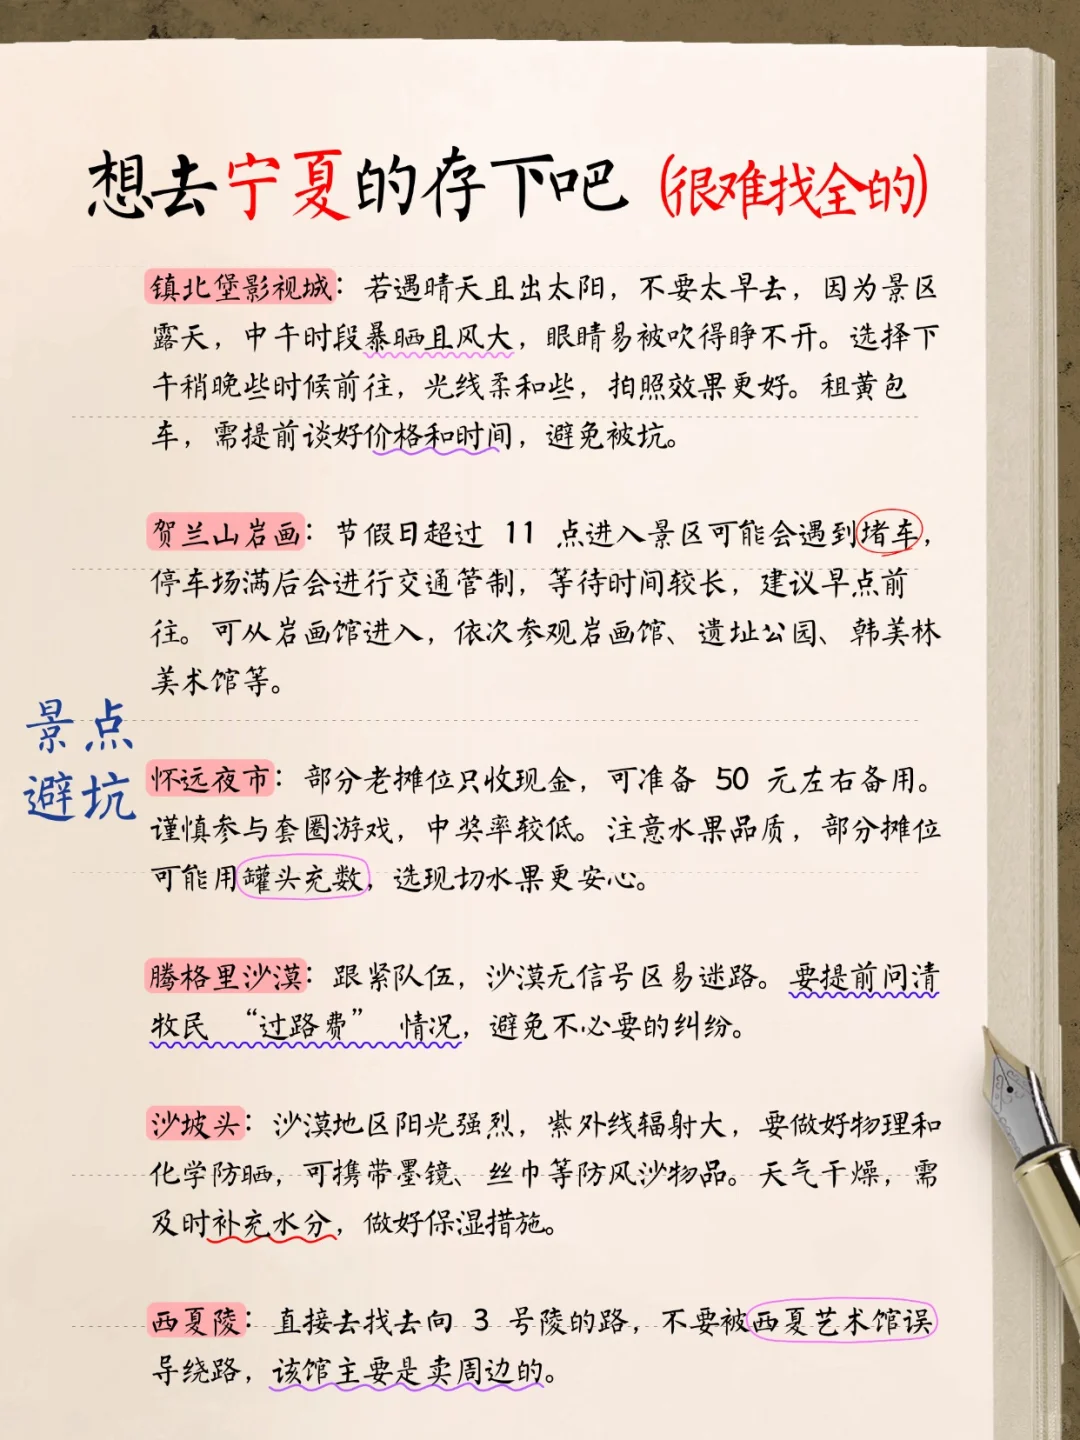 想去宁夏的存下吧（很难找全的）
镇北堡影视城：若遇晴天且出太阳，不要太早去，因为景区
露天，中午时段暴晒且风大，眼睛易被吹得睁不开。选择下
午稍晚些时候前往，光线柔和些，拍照效果更好。租黄包
车，需提前谈好价格和时间，避免被坑。
贺兰山岩画：节假日超过 11 点进入景区可能会遇到堵车，
停车场满后会进行交通管制，等待时间较长，建议早点前
往。可从岩画馆进入，依次参观岩画馆、遗址公园、韩美林
美术馆等。
景点
避坑
怀远夜市：部分老摊位只收现金，可准备 50 元左右备用。
谨慎参与套圈游戏，中奖率较低。注意水果品质，部分摊位
可能用罐头充数，选现切水果更安心。
腾格里沙漠：跟紧队伍，沙漠无信号区易迷路。要提前问清
牧民 “过路费” 情况，避免不必要的纠纷。
沙坡头：沙漠地区阳光强烈，紫外线辐射大，要做好物理和
化学防晒，可携带墨镜、丝巾等防风沙物品。天气干燥，需
及时补充水分，做好保湿措施。
西夏陵：直接去找去向 3 号陵的路，不要被西夏艺术馆误
导绕路，该馆主要是卖周边的。